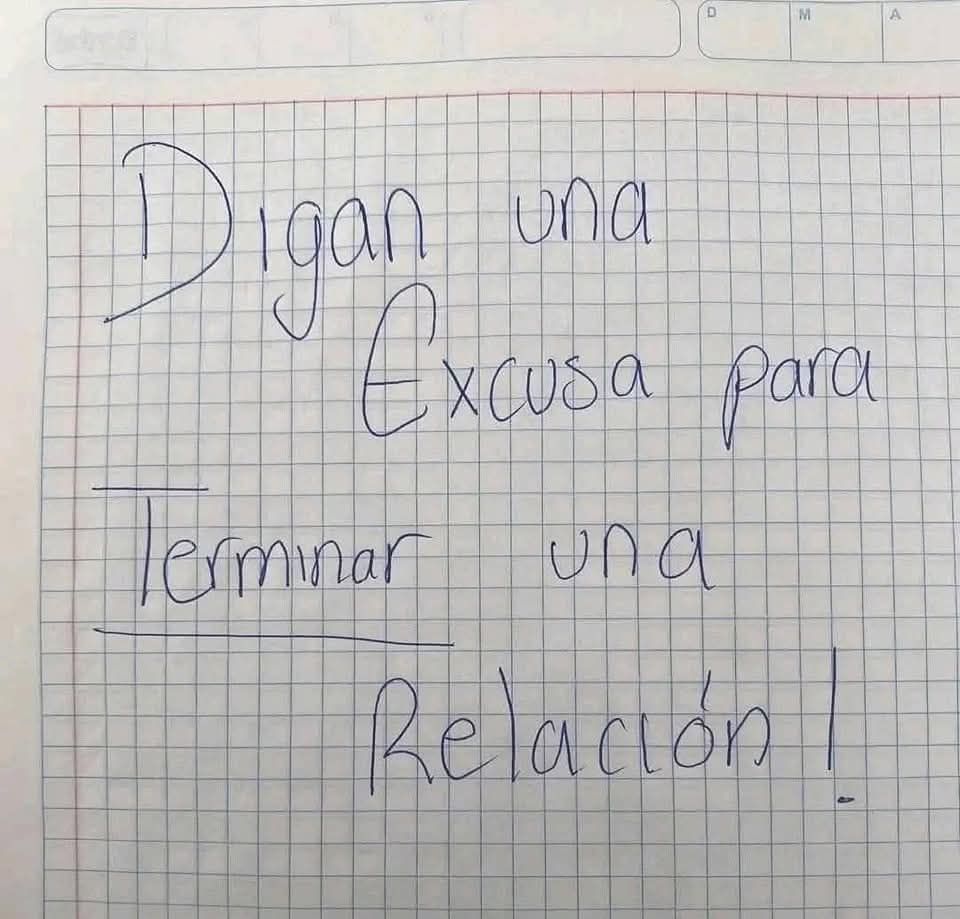 D M A
Digan una
Excusa para
Terminar una
Relación!